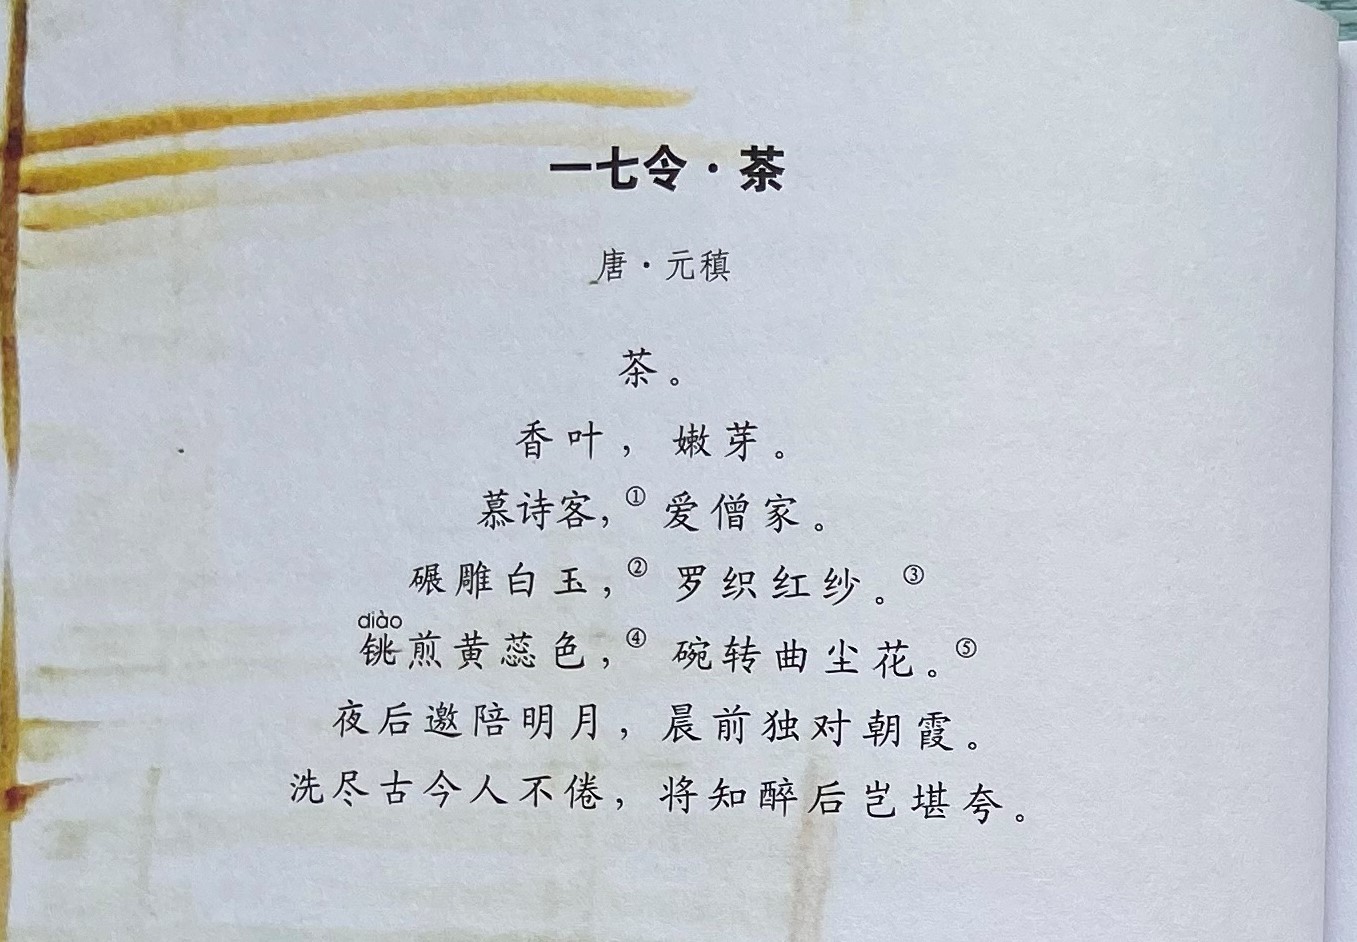 一七令·茶
唐·元稹
茶。
香叶，嫩芽。
慕诗客，① 爱僧家。
碾雕白玉，② 罗织红纱。③
diào
铫煎黄蕊色，④ 碗转曲尘花。⑤
夜后邀陪明月，晨前独对朝霞。
洗尽古今人不倦，将知醉后岂堪夸。